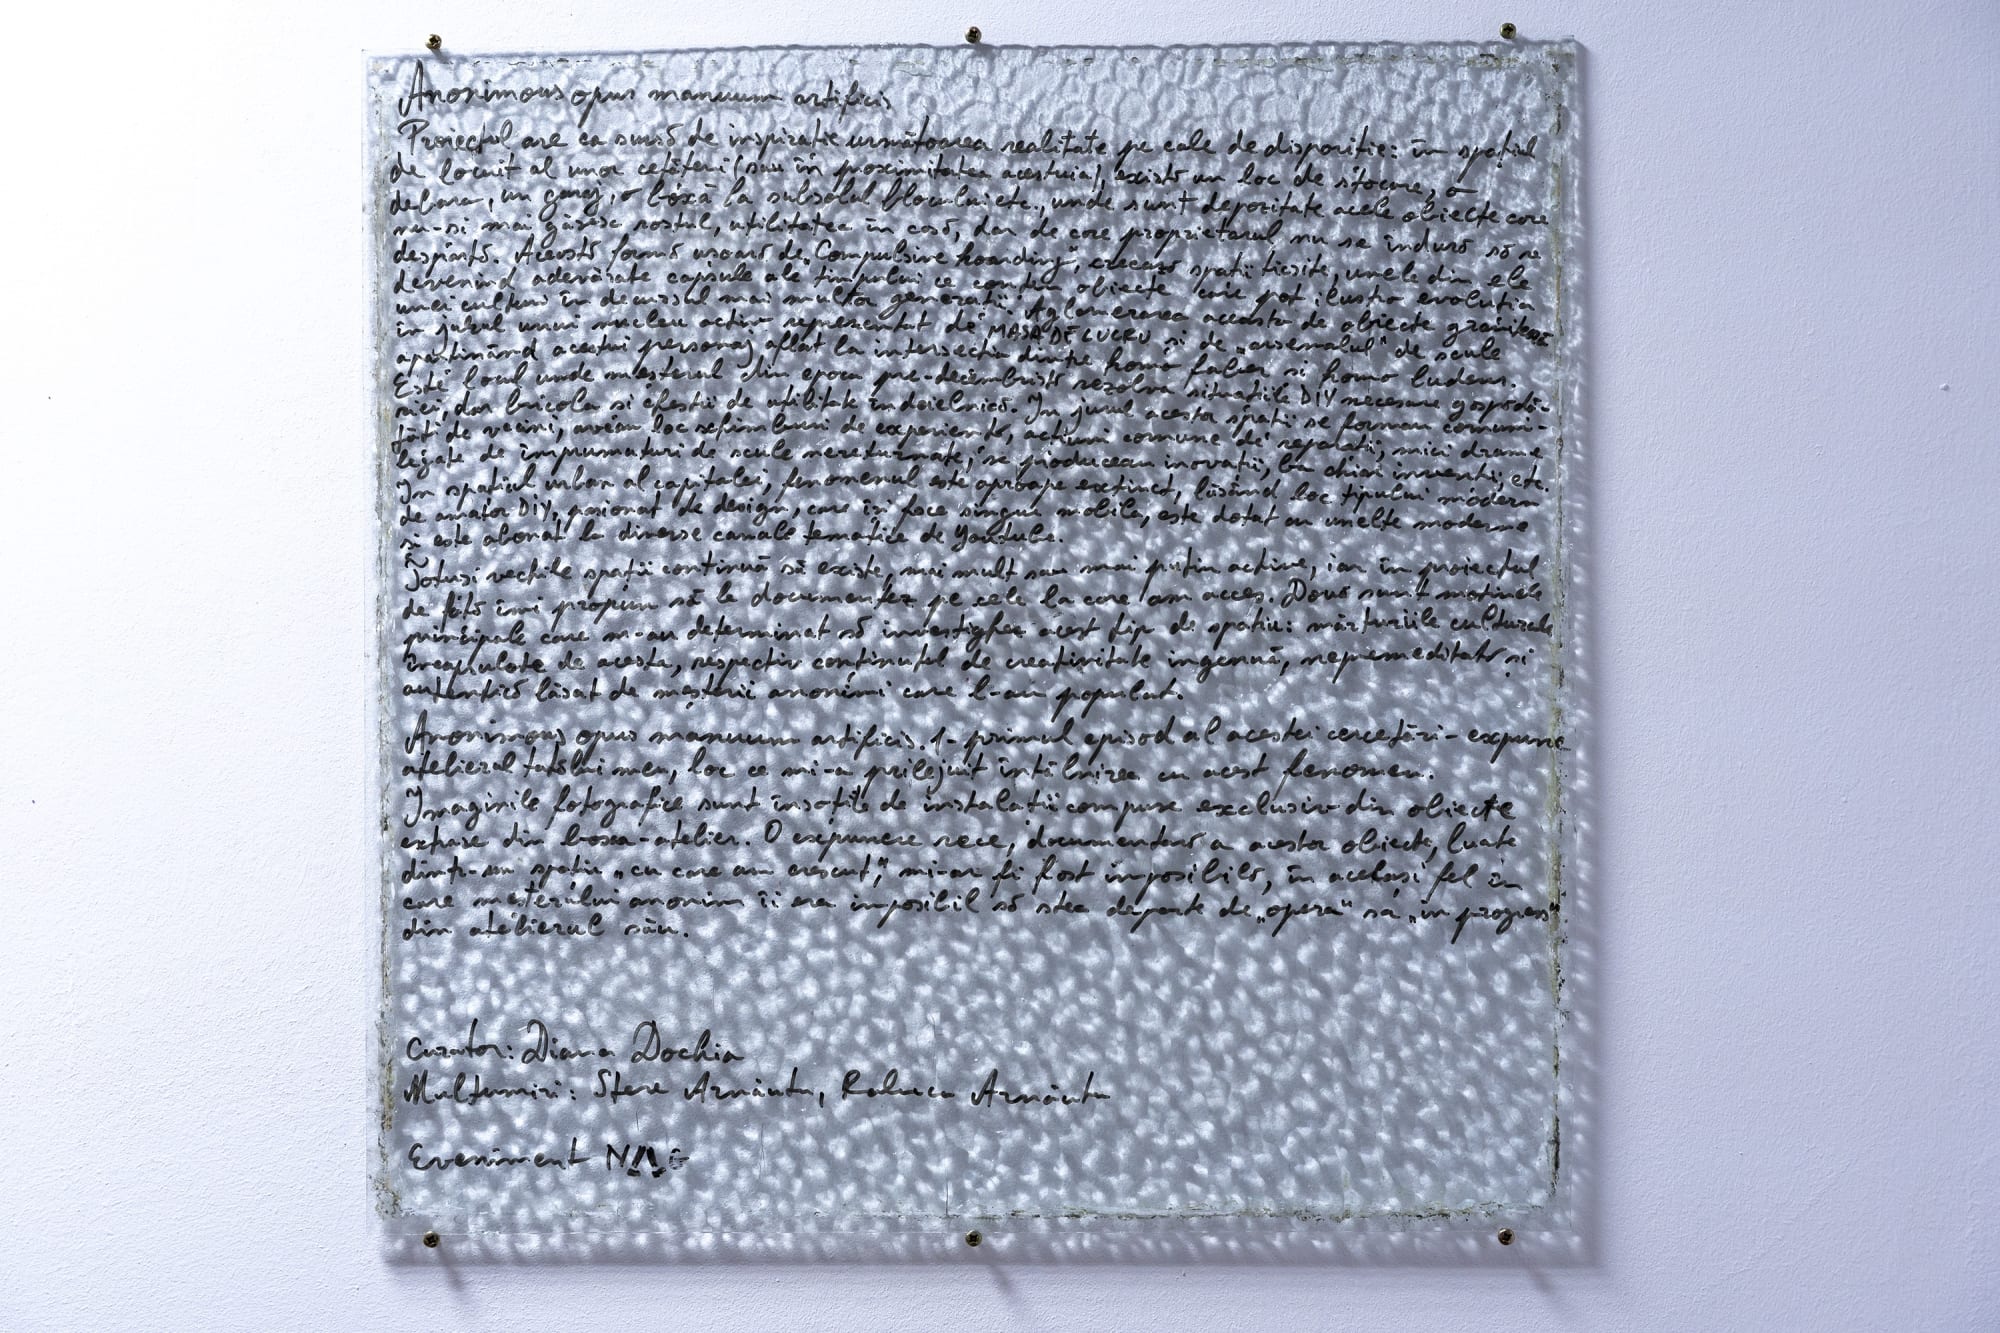 Anonimous opus manuum artificis
Proiectul are ca sursă de inspirație următoarea realitate pe cale de dispariție: în spațiul
de locuit al unor cetățeni (sau în proximitatea acestuia), există un loc de stocare, o
debara, un garaj, o boxă la subsolul blocului etc., unde sunt depozitate acele obiecte care
nu-si mai găsesc rostul, utilitatea în casă, dar de care proprietarul nu se îndură să se
despartă. Această formă usoară de „Compulsive hoarding", crează spatii ticsite, unele din ele
devenind adevărate capsule ale timpului ce contin obiecte care pot ilustra evolutia
unei culturi în decursul mai multor generatii. Aglomerarea aceasta de obiecte gravitează
în jurul unui nucleu activ reprezentat de MASA DE LUCRU si de „arsenalul" de scule
apartinând acestui personaj aflat la intersectia dintre homo faber si homo ludens.
Este locul unde mesterul din epoca pre-decembristă rezolva situatiile DIY necesare gospodă-
riei, dar bricola si chestii de utilitate îndoielnică. In jurul acestor spatii se formau comuni-
tăti de vecini, aveau loc schimburi de experientă, actiuni comune de reparatii, mici drame
legate de împrumuturi de scule nereturnate, se produceau inovatii, ba chiar inventii, etc.
In spatiul urban al capitalei, fenomenul este aproape extinct, lăsând loc tipului modern
de amator DIY, pasionat de design, care îsi face singur mobila, este dotat cu unelte moderne
si este abonat la diverse canale tematice de Youtube.
Totusi vechile spatii continuă să existe, mai mult sau mai putin active, iar în proiectul
de fată îmi propun să le documentez pe cele la care am acces. Două sunt motivele
principale care m-au determinat să investighez acest tip de spatiu: mărturiile culturale
încapsulate de acesta, respectiv continutul de creativitate ingenuă, nepremeditată si
autentică lăsat de mesterii anonimi care l-au populat.
Anonimous opus manuum artificis. 1- primul episod al acestei cercetări- expune
atelierul tatălui meu, loc ce mi-a prilejuit întâlnirea cu acest fenomen.
Imaginile fotografice sunt însotite de instalatii compuse exclusiv din obiecte
extrase din boxa-atelier. O expunere rece, documentară a acestor obiecte, luate
dintr-un spatiu „cu care am crescut", mi-ar fi fost imposibilă, în acelasi fel în
care mesterului anonim îi era imposibil să stea departe de „opera" sa „in progress"
din atelierul său.
Curator: Diana Dochia
Multumiri: Stere Arnăutu, Raluca Arnăutu
Eveniment NAG